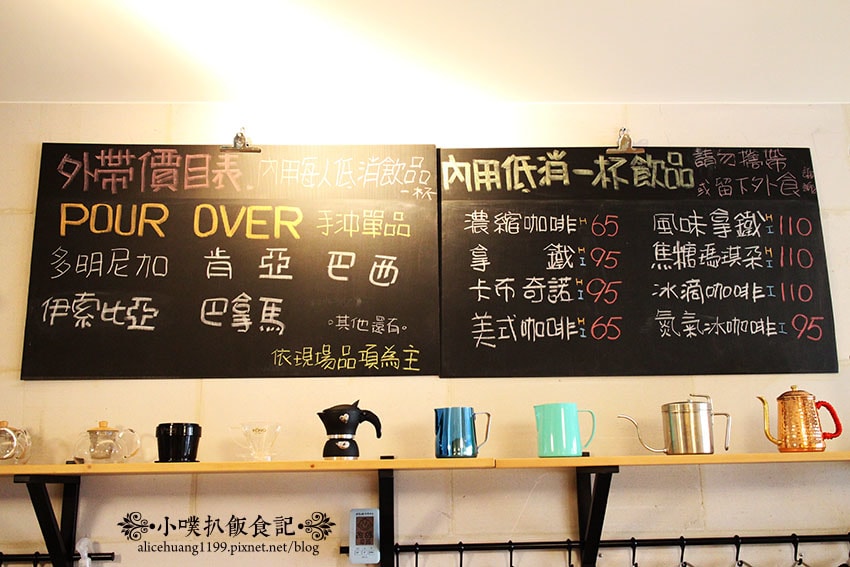 外帶價目表.內用每人低消飲品
一杯
POUR OVER 手沖單品
多明尼加 肯亞 巴西
伊索比亞 巴拿馬
。其他還有。
依現場品項為主
內用低消一杯飲品
請勿攜帶
或留下外食
濃縮咖啡 H I 65
拿鐵 H I 95
卡布奇諾 H I 95
美式咖啡 H I 65
風味拿鐵 H I 110
焦糖瑪琪朵 H I 110
冰滴咖啡 I 110
氮氣冰咖啡 I 95
小噗扒飯食記
alicehuang1199.pixnet.net/blog